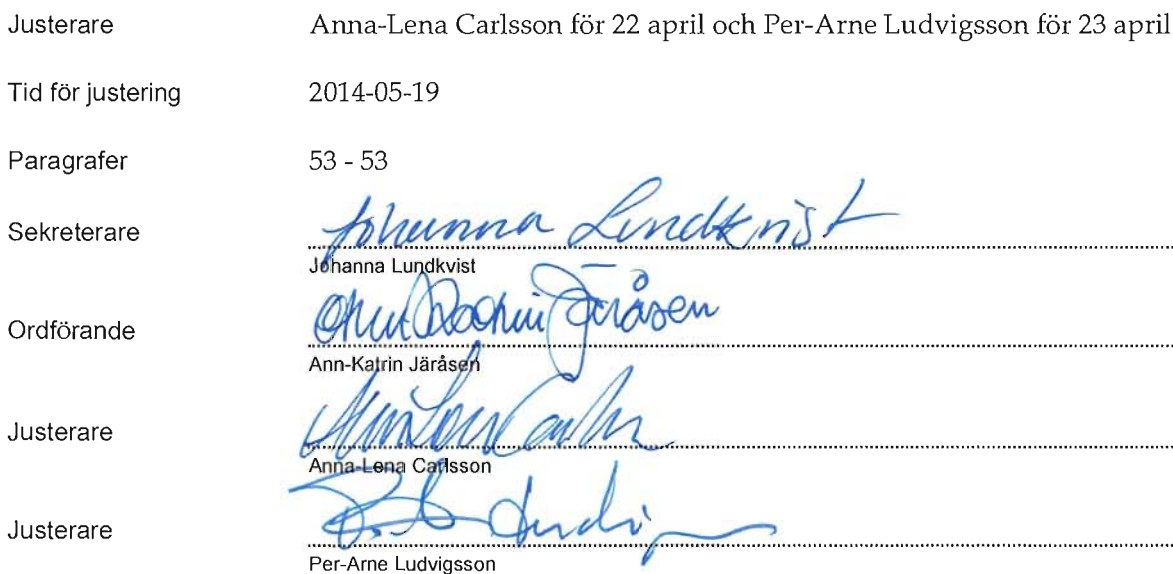 Justerare Anna-Lena Carlsson för 22 april och Per-Arne Ludvigsson för 23 april
Tid för justering 2014-05-19
Paragrafer 53 - 53
Sekreterare Johanna Lundkvist
Johanna Lundkvist
Ordförande Järåsen
Ann-Katrin Järåsen
Justerare
Anna-Lena Carlsson
Justerare
Per-Arne Ludvigsson